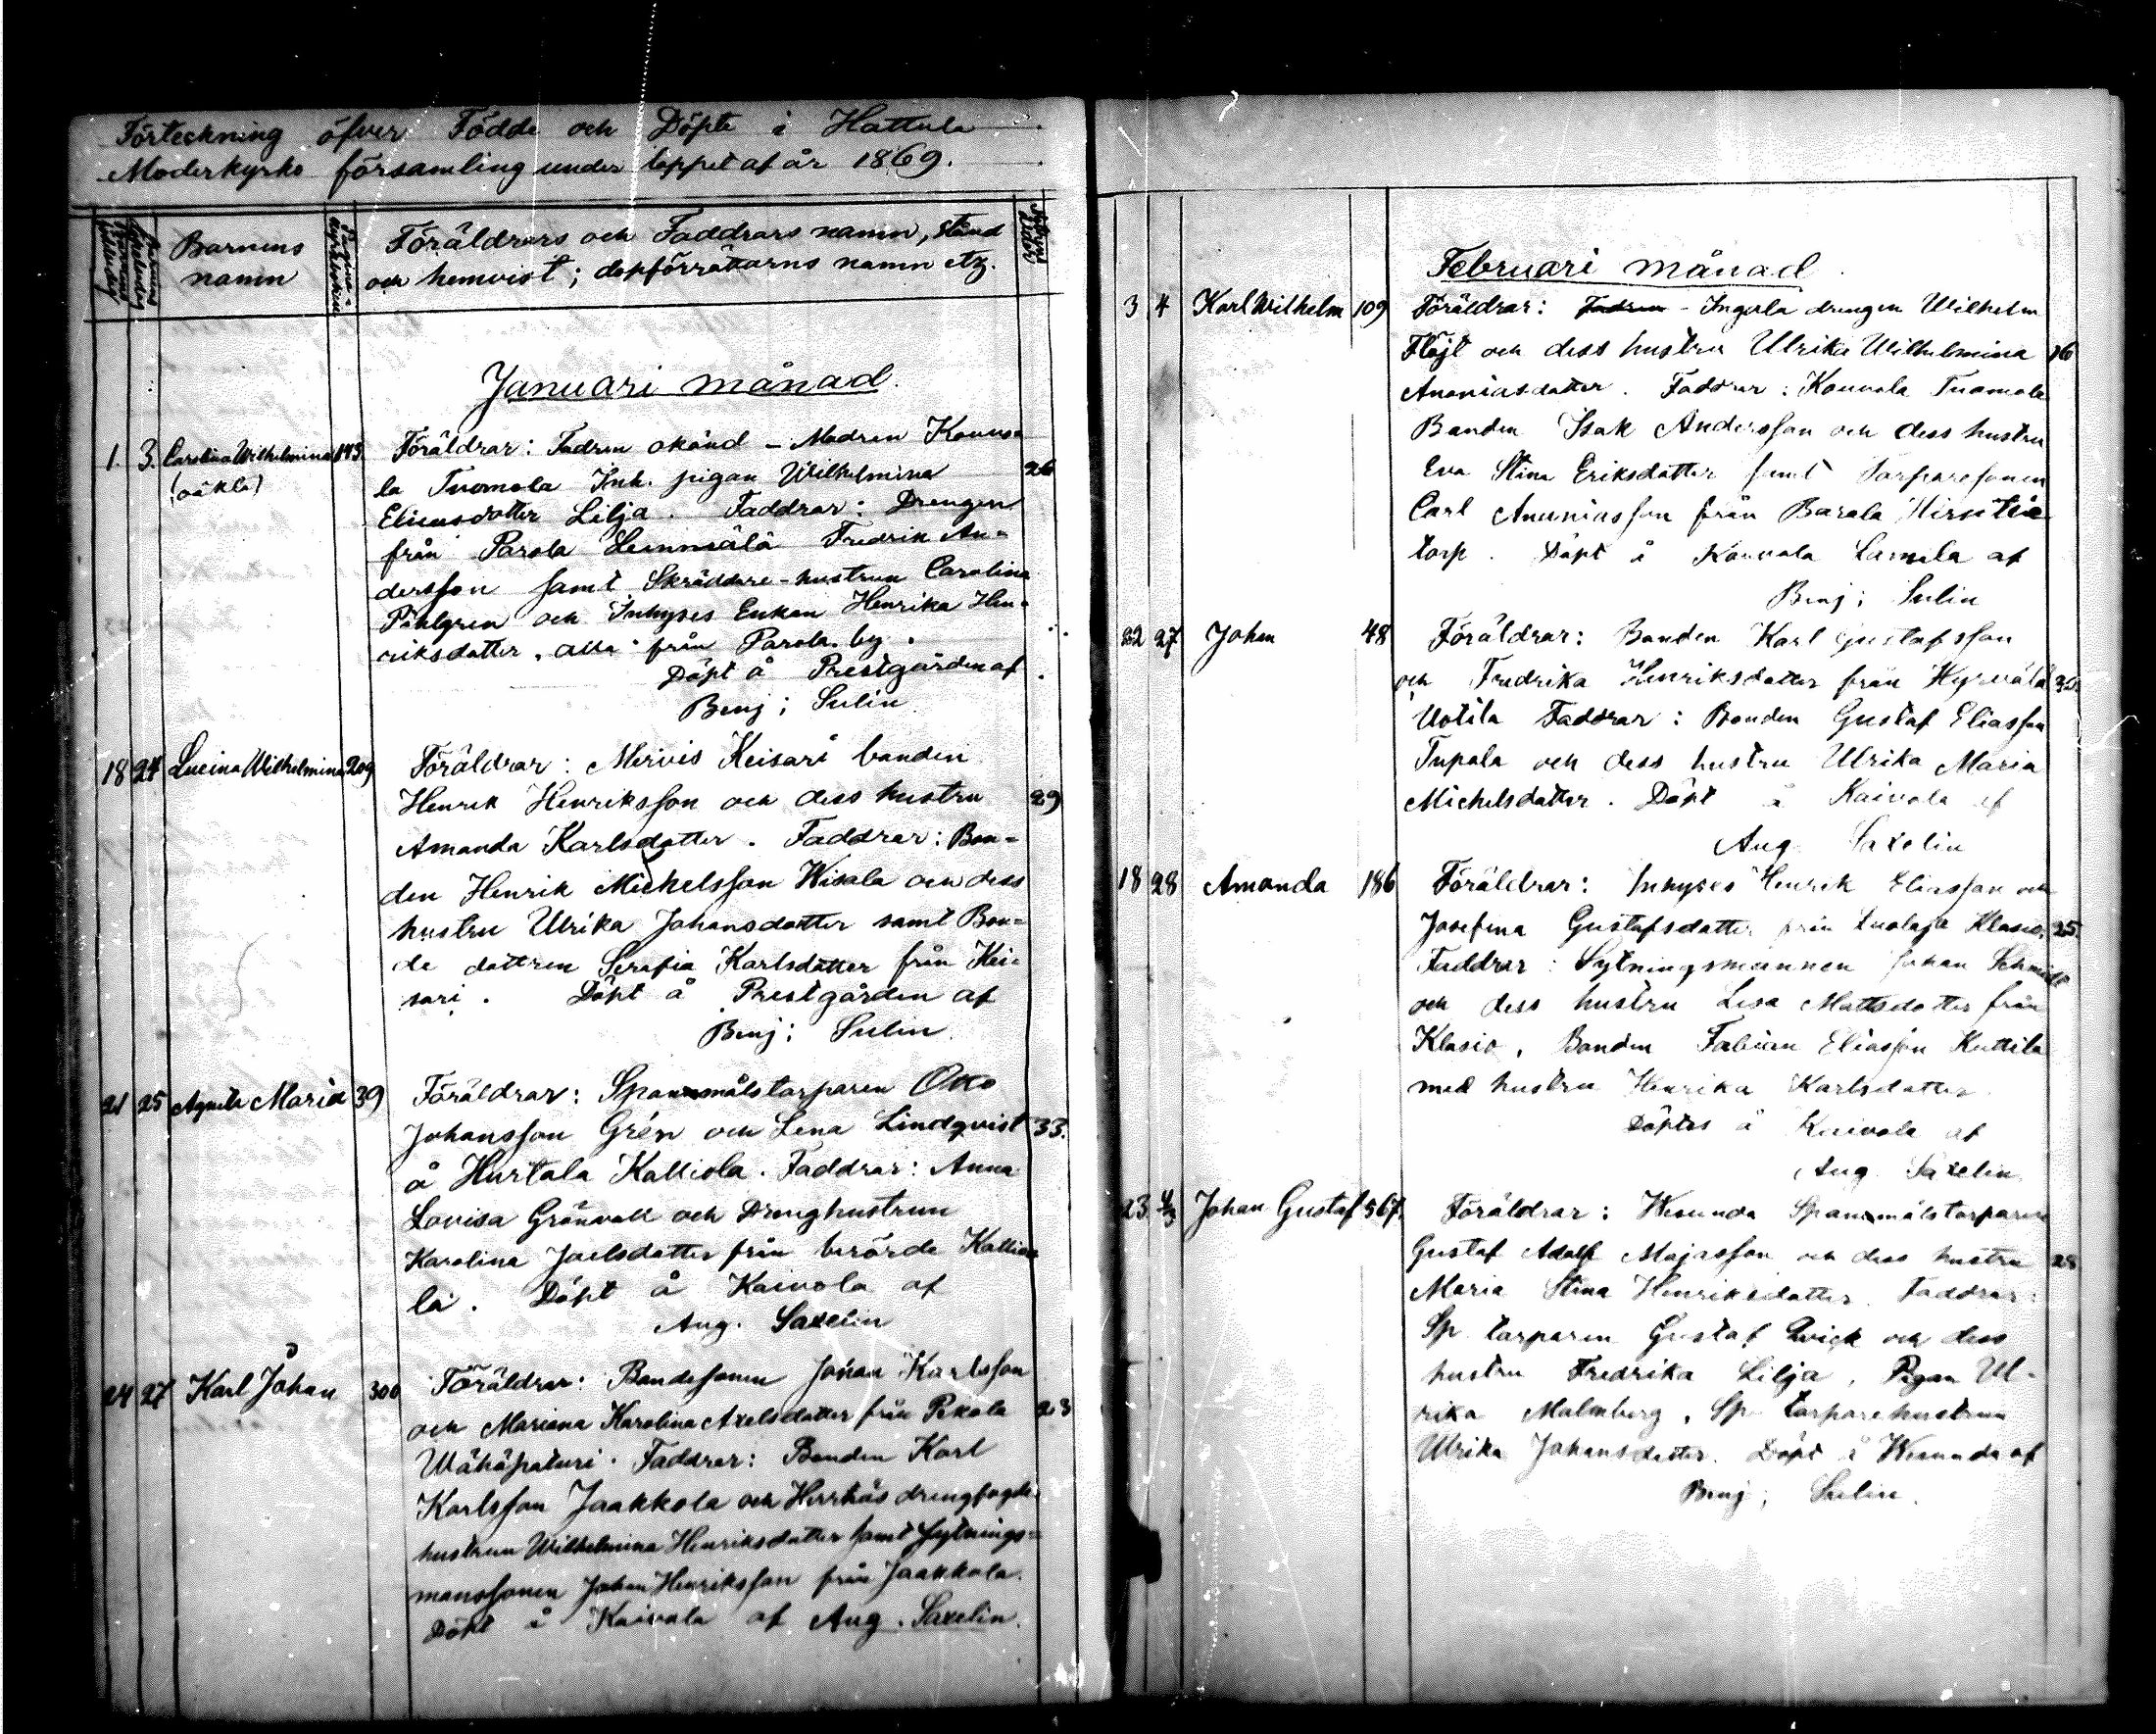 Förteckning öfver Födde och Döpte i Hattula
Moderkyrko församling under loppet af år 1869.
Barnens
namn
Föräldrars och Faddrars namn, stånd
och hemvist; dopförrättarns namn etz.
Januari månad.
1. 3. Carolina Wilhelmina 143
(oäkta)
Föräldrar: Fadren okänd - Modren Kouvo-
la Tuomola Inh. pigan Wilhelmina 26
Eliaesdotter Lilja. Faddrar: Drengen
från Parola Lemmälä Fredrik An-
dersson samt Skräddare-hustrun Carolina
Påhlgren och Inhyses Enkan Henrika Hen-
riksdotter, alla från Parola by.
Döpt å Prestgården af
Benj: Sulin
18 24 Lucina Wilhelmina 209
Föräldrar: Mervis Keisari bonden
Henrik Henriksson och dess hustru 29
Amanda Karlsdotter. Faddrar: Bon-
den Henrik Michelsson Wisala och dess
hustru Ulrika Johansdotter samt Bon-
de dottren Serafia Karlsdotter från Kei-
sari. Döpt å Prestgården af
Benj: Sulin.
21 25 Agneta Maria 39
Föräldrar: Spanmålstorparen Otto
Johansson Grén och Lena Lindqvist 33.
å Hurtala Kalliola. Faddrar: Anna
Lovisa Grönvall och Drenghustrun
Karolina Joelsdotter från berörde Kallio-
la. Döpt å Kaivola af
Aug. Saxelin
24 27 Karl Johan 300
Föräldrar: Bondesonen Johan Karlsson
och Mariana Karolina Axelsdotter från Pekola 23
Wähäpaturi. Faddrar: Bonden Karl
Karlsson Jaakkola och Herrnäs drengfogde-
hustrun Wilhelmina Henriksdotter samt Sytnings-
manssonen Johan Henriksson från Jaakkola.
Döpt å Kaivola af Aug. Saxelin.
Februari månad.
3 4 Karl Wilhelm 109
Föräldrar: Fadren - Ingerla drengen Wilhelm
Flöjt och dess hustru Ulrika Wilhelmina 26
Ananiasdotter. Faddrar: Kouvola Tuomola
Bonden Isak Andersson och dess hustru
Eva Stina Eriksdotter samt Torparesonen
Carl Ananiasson från Parola Hirsitie
torp. Döpt å Kouvola Lamila af
Benj: Sulin
22 27 Johan 48
Föräldrar: Bonden Karl Gustafsson
och Fredrika Henriksdotter från Hyrvälä
Uotila Faddrar: Bonden Gustaf Eliasson
Tupala och dess hustru Ulrika Maria
Michelsdotter. Döpt å Kaivola af
Aug. Saxelin
18 28 Amanda 186
Föräldrar: Inhyses Henrik Eliasson och
Josefina Gustafsdotter från Luolaja Klasio. 25.
Faddrar: Sytningsmannen Johan Schmidt
och dess hustru Lisa Mattsdotter från
Klasio, Bonden Fabian Eliasson Kuttila
med hustru Henrika Karlsdotter
Döptes å Kaivola af
Aug. Saxelin
23 1/3 Johan Gustaf 567.
Föräldrar: Wesunda Spanmålstorparen
Gustaf Adolf Majasson och dess hustru 28
Maria Stina Henriksdotter. Faddrar:
Sp torparen Gustaf Qvick och dess
hustru Fredrika Lilja, Pigan Ul-
rika Malmberg, Sp torparehustrun
Ulrika Johansdotter. Döpt å Wesunda af
Benj: Sulin.